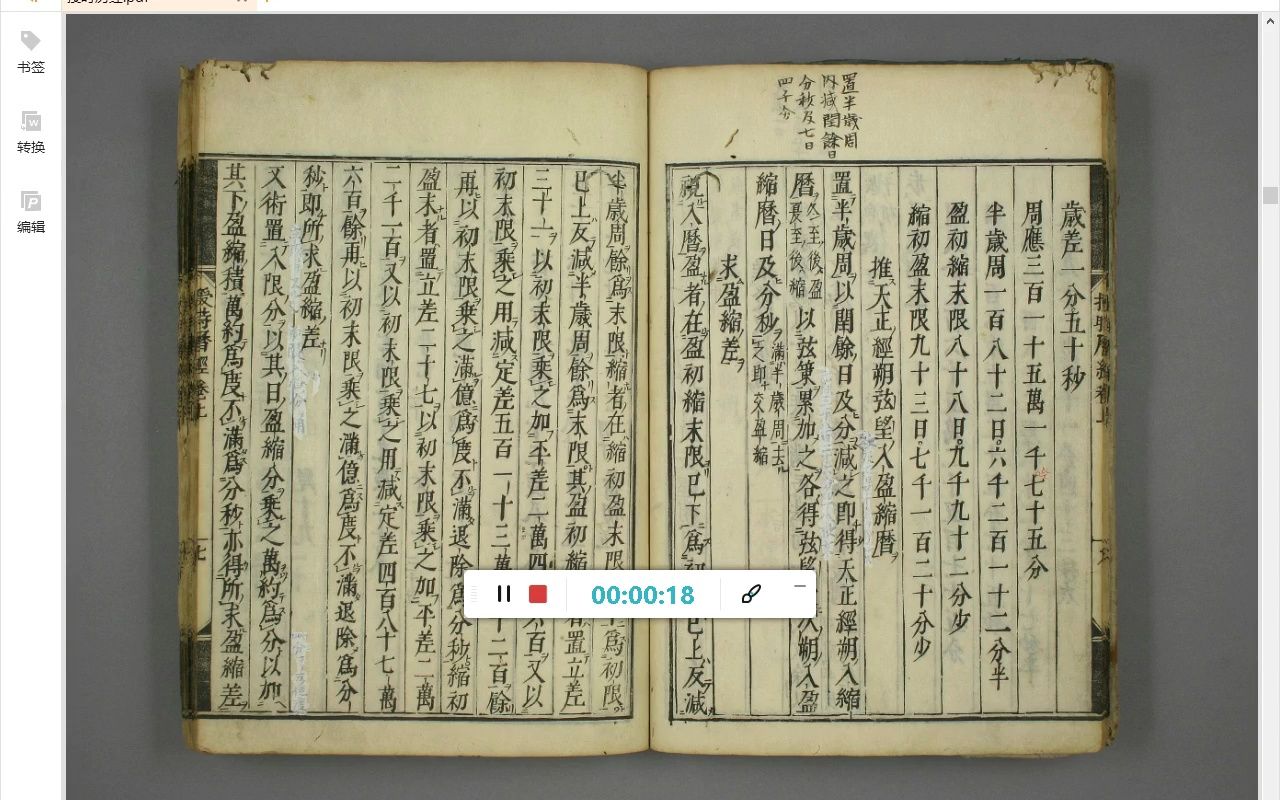 书签
转换
编辑
00:00:18
置半歲周
内減閏餘日
分秒及七日
四千分
歲差一分五十秒
周應三百一十五萬一千七十五分
半歲周一百八十二日六千二百一十二分半
盈初縮末限八十八日九千九十二分少
縮初盈末限九十三日七千一百二十分少
推天正經朔弦望入盈縮曆
置半歲周以閏餘日及分減之即得天正經朔入縮
曆冬至後盈夏至後縮以弦策累加之各得弦朔入盈
縮曆日及分秒滿半歲周去之即交盈縮
求盈縮差
視入曆盈者在盈初縮末限已下爲初已上反減
半歲周餘爲末限縮者在縮初盈末限爲初限
已上反減半歲周餘爲末限其盈初縮者置立差
三十一以初末限乘之加平差二萬四百又以
初末限乘之用減定差五百一十三萬十二百餘
再以初末限乘之滿億爲度不滿退除爲分秒縮初
盈末者置立差二十七以初末限乘之加平差二萬
二千一百又以初末限乘之用減定差四百八十七萬
六百餘再以初末限乘之滿億爲度不滿退除爲分
秒即所求盈縮差
又術置入限分以其日盈縮分乘之萬約爲分以加
其下盈縮積萬約爲度不滿爲分秒亦得所求盈縮差
授時曆經卷上